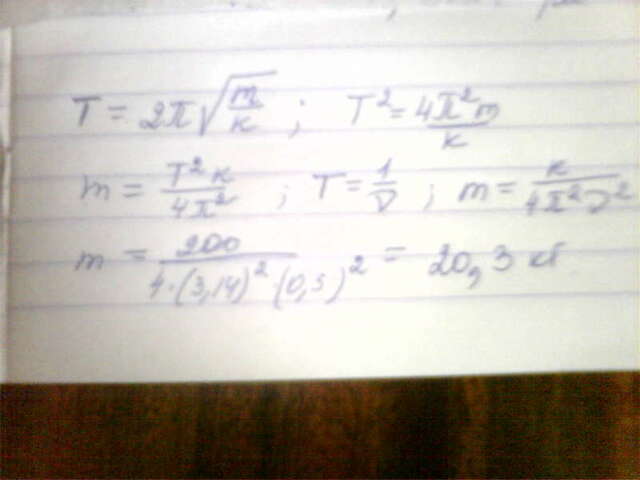 T = 2π√(m/к) ; T² = 4π²m/к
m = T²к/4π² ; T = 1/ν ; m = к/4π²ν²
m = 200/4·(3,14)²·(0,5)² = 20,3 кг